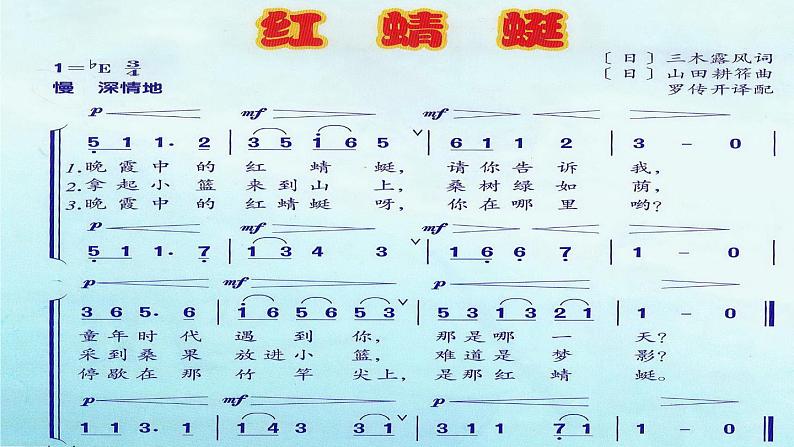 红 蜻 蜓
1=♭E 3/4
〔日〕三木露风词
慢 深情地
〔日〕山田耕筰曲
罗传开译配
p mf p mf
5 1 1· 2 | 1 3 5 1 6 5 ∨ | 6 1 1 2 | 3 - 0 |
1.晚霞中的红蜻蜓，请你告诉我，
2.拿起小篮来到山上，桑树绿如荫，
3.晚霞中的红蜻蜓呀，你在哪里哟？
p mf p mf
5 1 1· 7 | 1 3 4 3 ∨ | 1 6 6 7 | 1 - 0 |
p mf p
3 6 5· 6 | 1 6 5 6 5 3 ∨ | 5 3 1 3 2 1 | 1 - 0 ‖
童年时代遇到你，那是哪一天？
采到桑果放进小篮，难道是梦影？
停歇在那竹竿尖上，是那红蜻蜓。
p mf p
1 1 3· 1 | 4 3 3 1 ∨ | 3 1 1 7 1 | 1 - 0 ‖